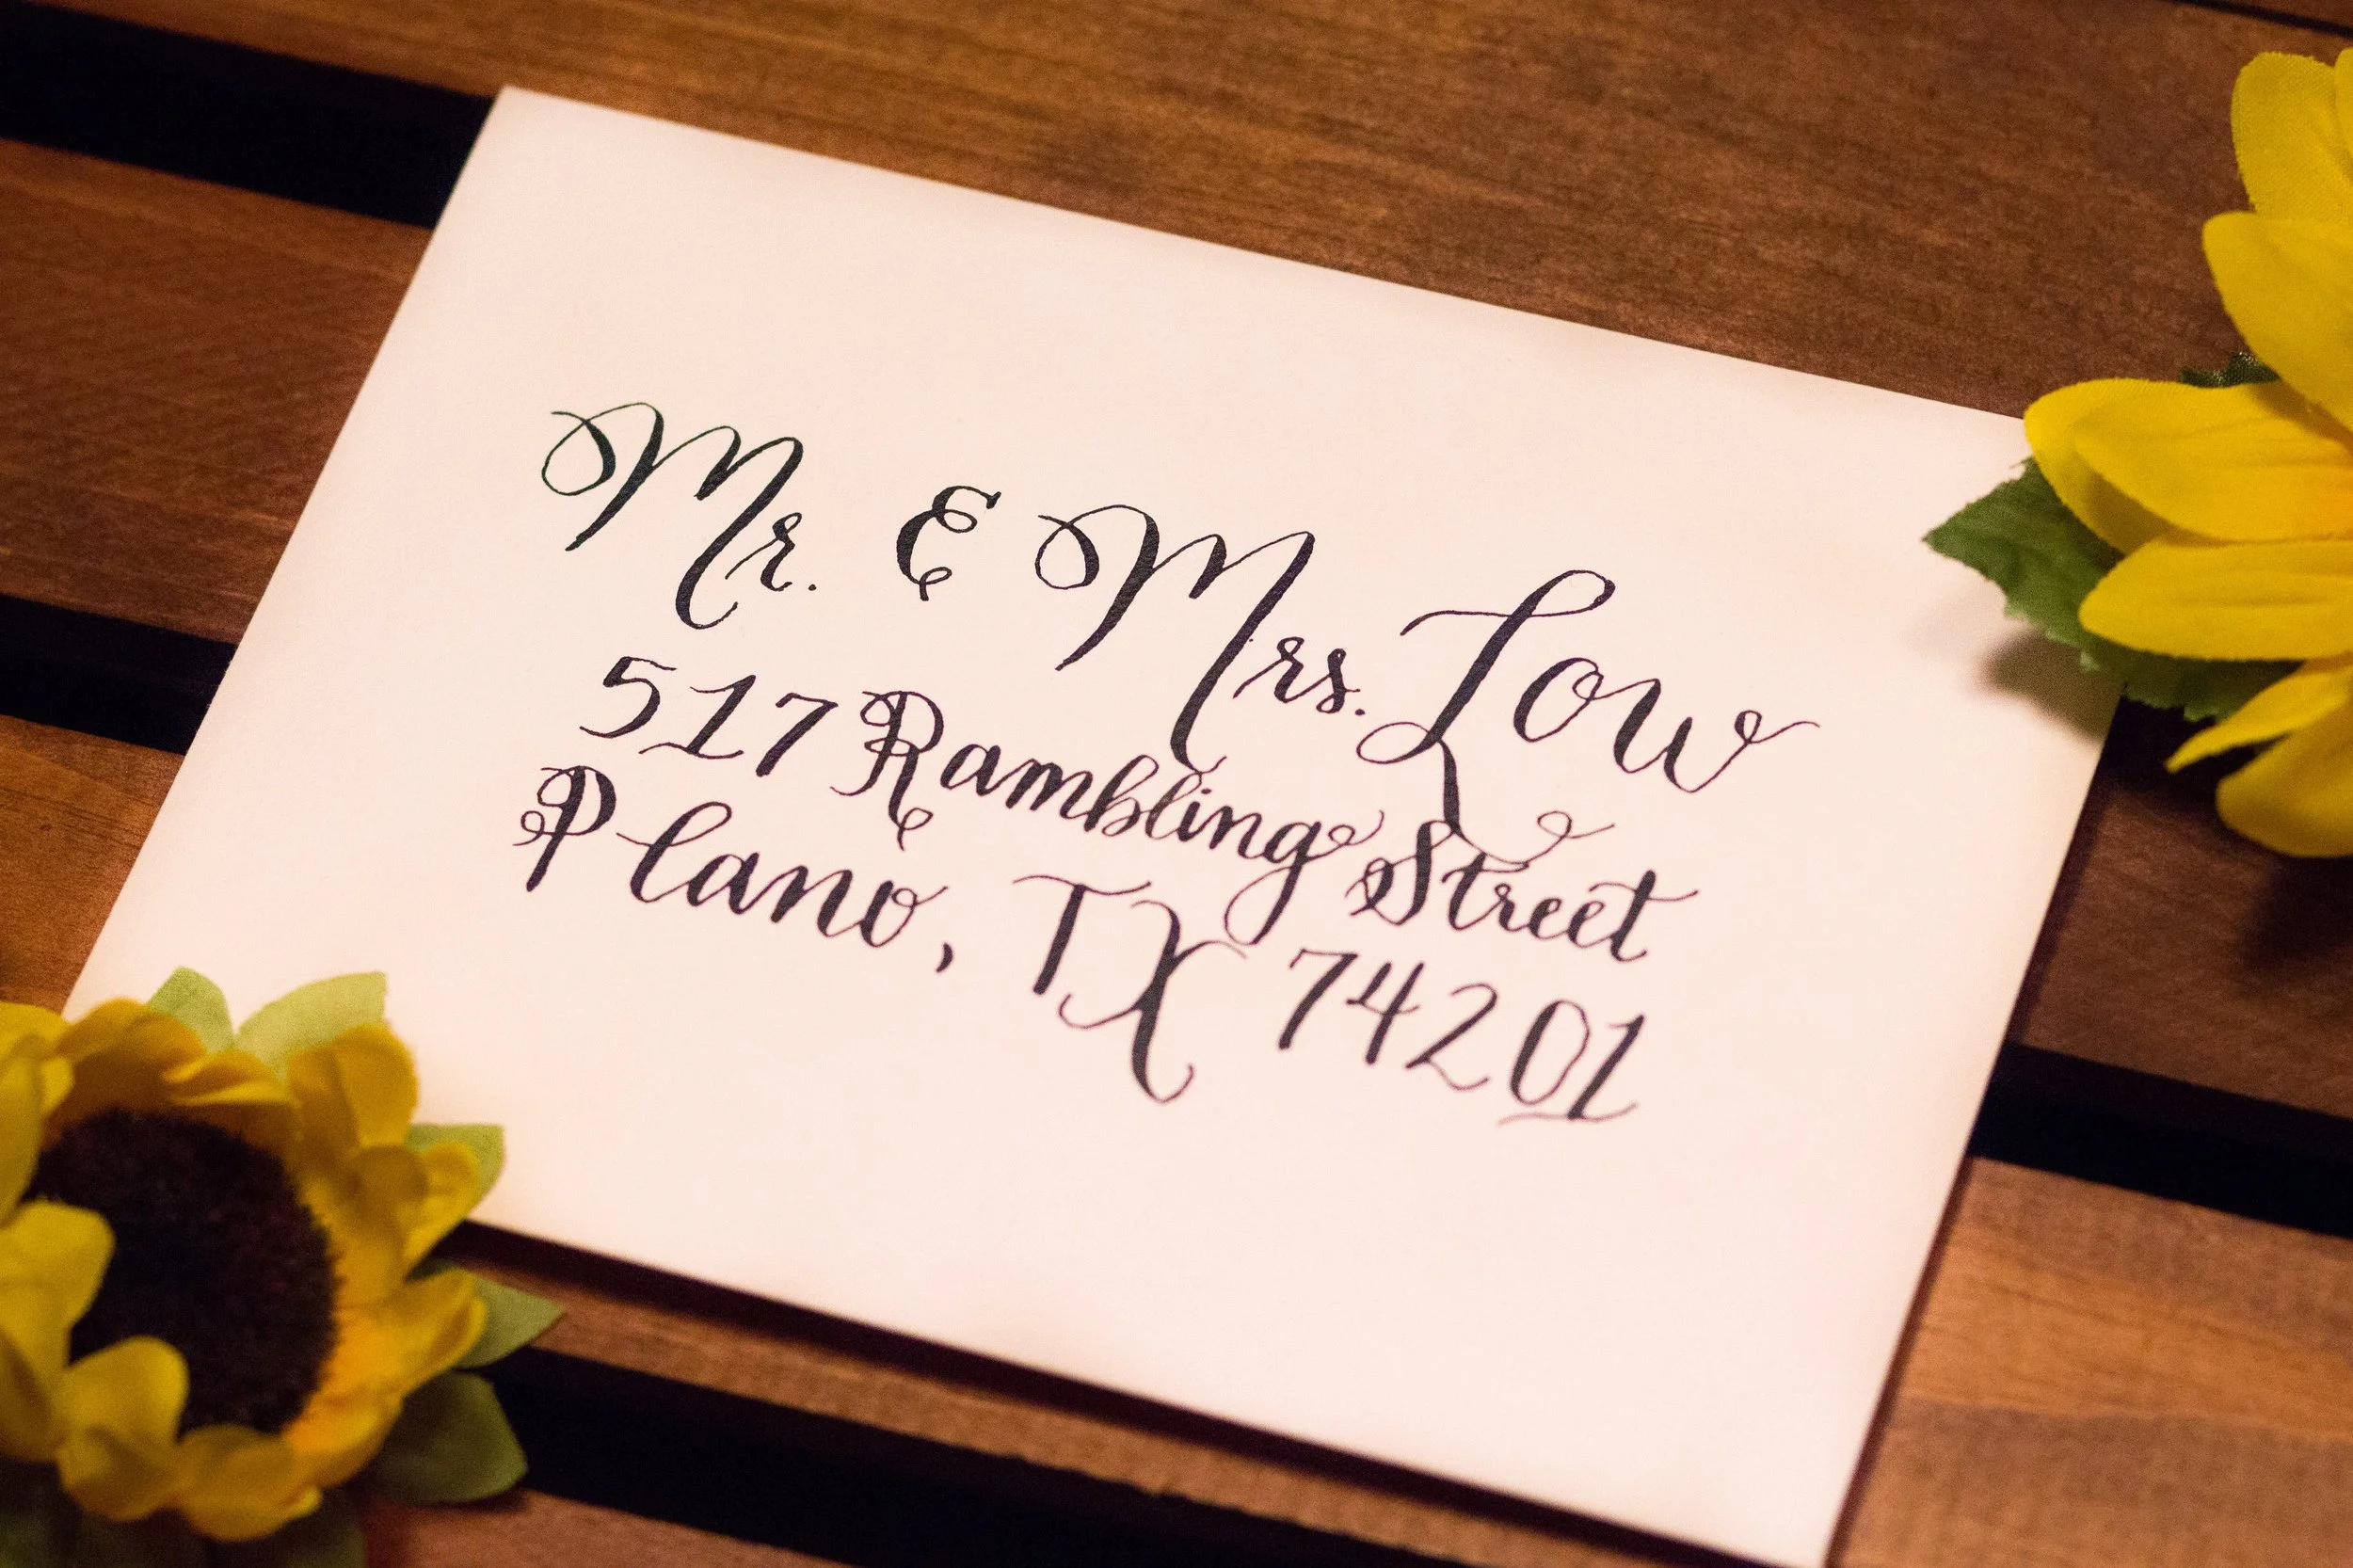 Mr. & Mrs. Low
517 Rambling Street
Plano, TX 74201